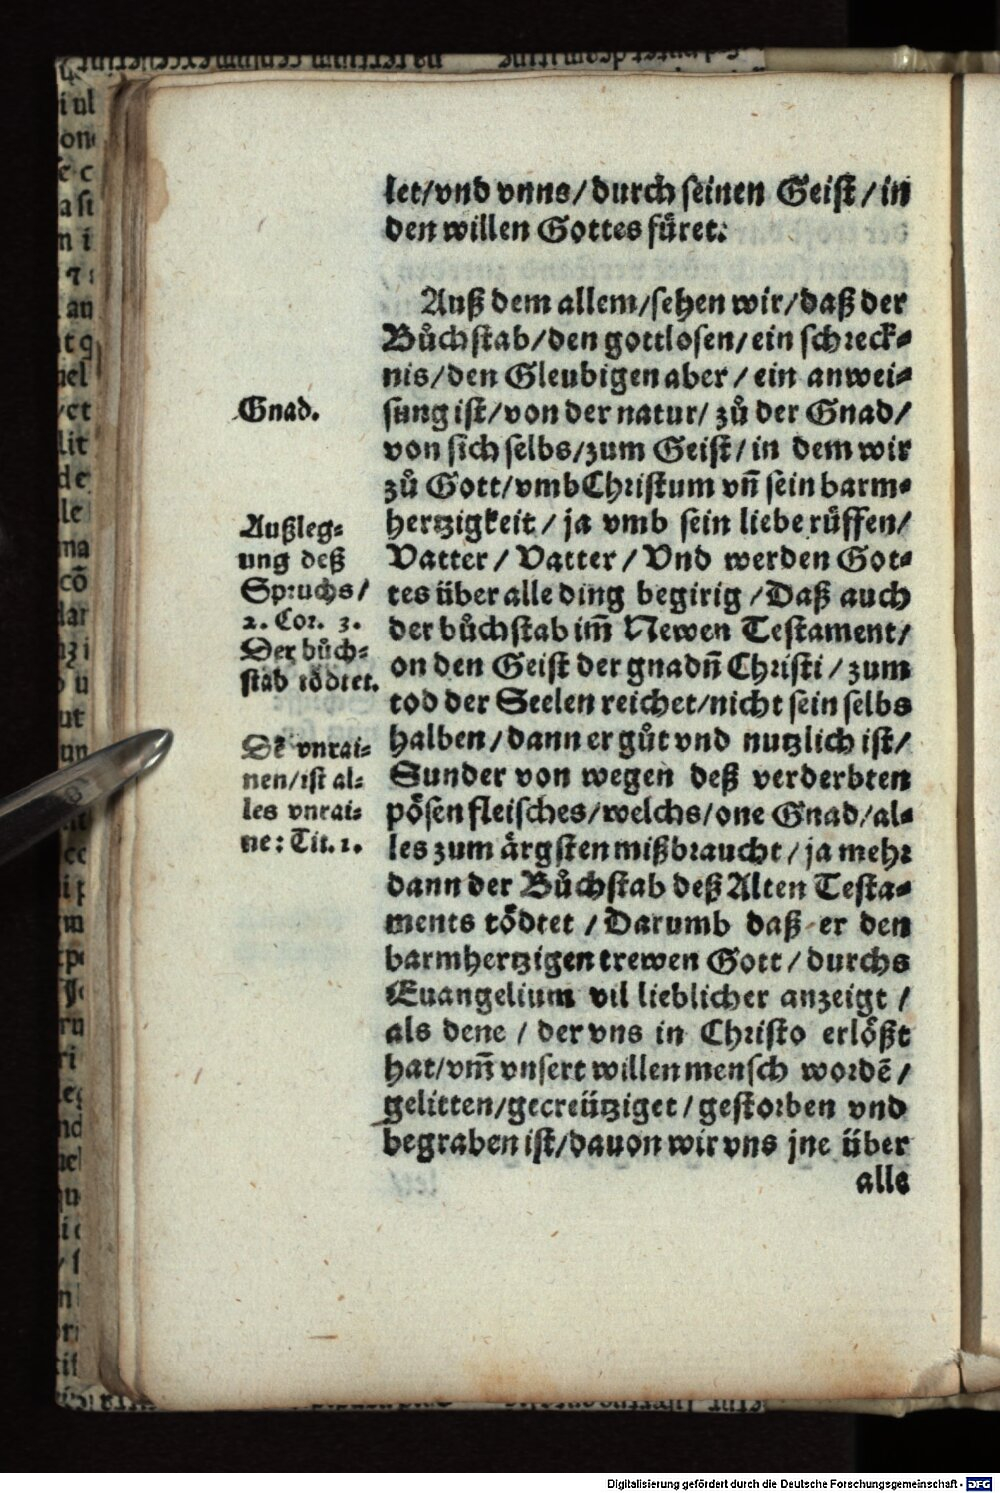 let/vnd vnns/durch seinen Geist/in
den willen Gottes füret.
Auß dem allem/sehen wir/daß der
Bůchstab/den gottlosen/ein schreck-
nis/den Gleubigen aber/ein anwei-
sung ist/von der natur/zů der Gnad/
von sich selbs/zum Geist/in dem wir
zů Gott/vmb Christum vn̄ sein barm-
hertzigkeit/ja vmb sein liebe rüffen/
Vatter/Vatter/Vnd werden Got-
tes über alle ding begirig/Daß auch
der bůchstab im̄ Newen Testament/
on den Geist der gnadn̄ Christi/zum
tod der Seelen reichet/nicht sein selbs
halben/dann er gůt vnd nutzlich ist/
Sunder von wegen deß verderbten
pösen fleisches/welchs/one Gnad/al-
les zum ärgsten mißbraucht/ja mehr
dann der Bůchstab deß Alten Testa-
ments tödtet/Darumb daß er den
barmhertzigen trewen Gott/durchs
Euangelium vil lieblicher anzeigt/
als dene/der vns in Christo erlößt
hat/vm̄ vnsert willen mensch wordē/
gelitten/gecreütziget/gestorben vnd
begraben ist/dauon wir vns jne über
alle
Gnad.
Außleg-
ung deß
Spruchs/
2. Cor. 3.
Der bůch-
stab tödtet.
Dē vnrai-
nen/ist al-
les vnrai-
ne: Tit. 1.
Digitalisierung gefördert durch die Deutsche Forschungsgemeinschaft - DFG